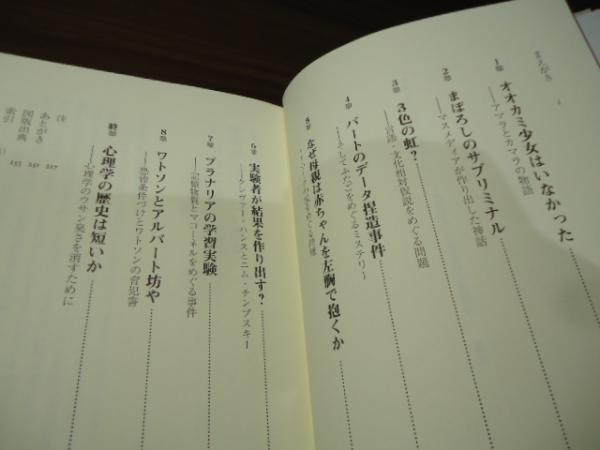 まえがき
1章
オオカミ少女はいなかった
――アマラとカマラの物語
2章
まぼろしのサブリミナル
――マスメディアが作り出した神話
3章
3色の虹?
――言語・文化相対仮説をめぐる問題
4章
バートのデータ捏造事件
――そしてふたごをめぐるミステリー
5章
なぜ母親は赤ちゃんを左胸で抱くか
6章
実験者が結果を作り出す?
――クレヴァー・ハンスとニム・チンプスキー
7章
プラナリアの学習実験
――記憶物質とマコーネルをめぐる事件
8章
ワトソンとアルバート坊や
――恐怖条件づけとワトソンの育児書
終章
心理学の歴史は短いか
――心理学のウサン臭さを消すために
注
あとがき
図版出典
索引